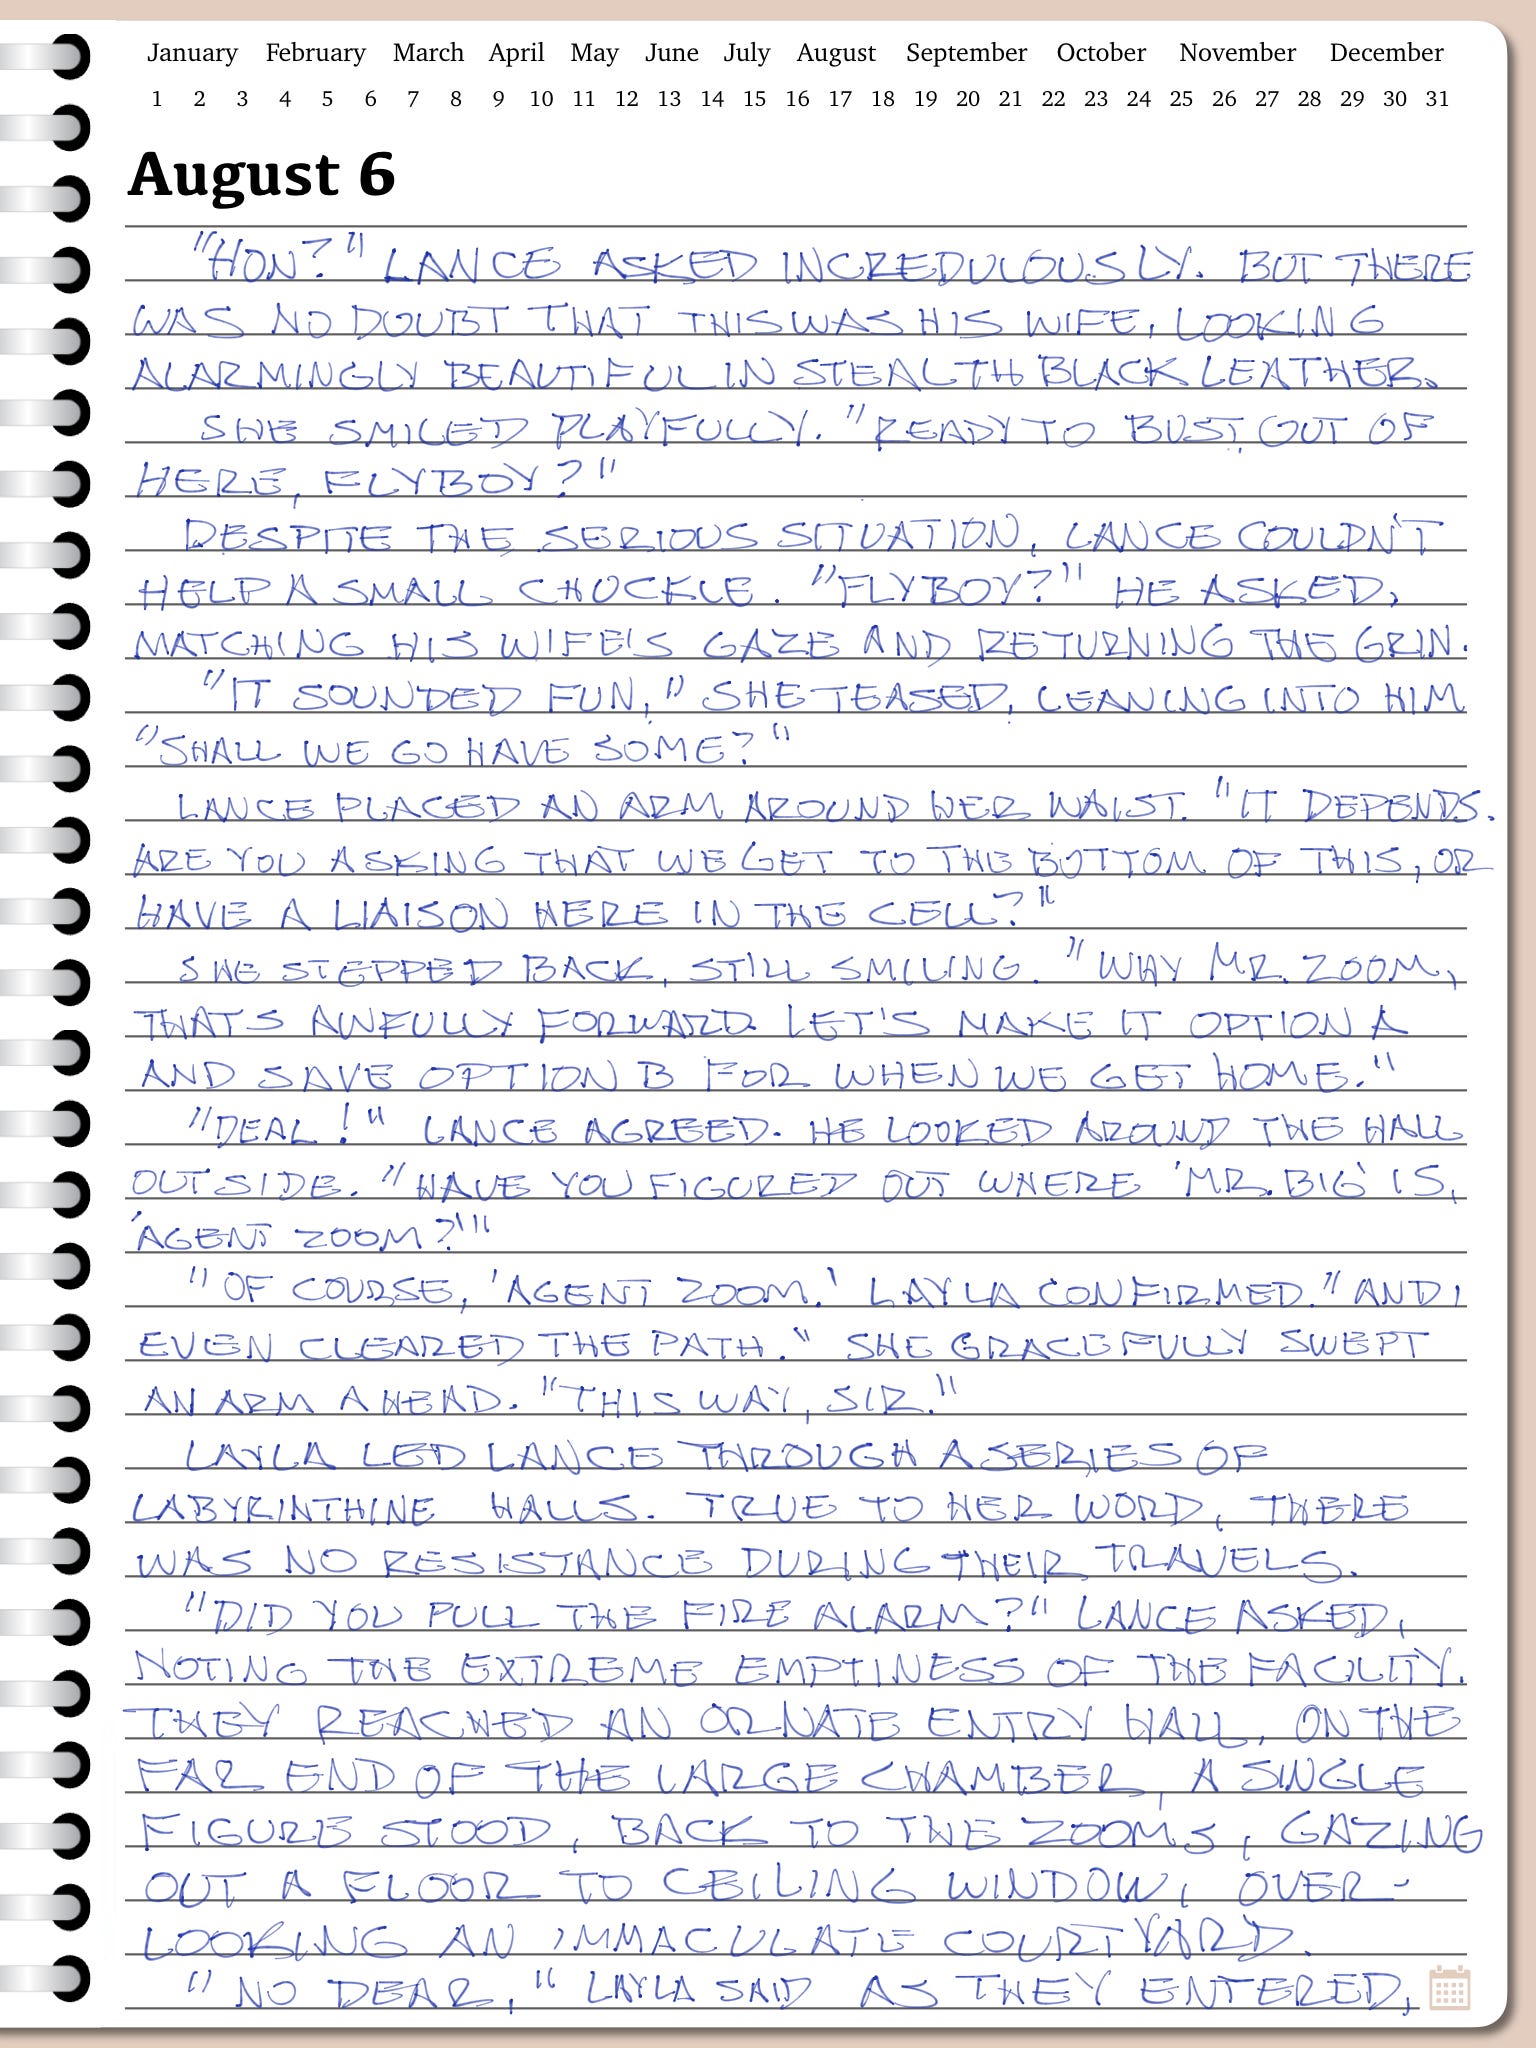 January February March April May June July August September October November December
1 2 3 4 5 6 7 8 9 10 11 12 13 14 15 16 17 18 19 20 21 22 23 24 25 26 27 28 29 30 31
August 6
"HON?" LANCE ASKED INCREDULOUSLY. BUT THERE
WAS NO DOUBT THAT THIS WAS HIS WIFE, LOOKING
ALARMINGLY BEAUTIFUL IN STEALTH BLACK LEATHER.
SHE SMILED PLAYFULLY. "READY TO BUST OUT OF
HERE, FLYBOY?"
DESPITE THE SERIOUS SITUATION, LANCE COULDN'T
HELP A SMALL CHUCKLE. "FLYBOY?" HE ASKED,
MATCHING HIS WIFE'S GAZE AND RETURNING THE GRIN.
"IT SOUNDED FUN," SHE TEASED, LEANING INTO HIM
"SHALL WE GO HAVE SOME?"
LANCE PLACED AN ARM AROUND HER WAIST. "IT DEPENDS.
ARE YOU ASKING THAT WE GET TO THE BOTTOM OF THIS, OR
HAVE A LIAISON HERE IN THE CELL?"
SHE STEPPED BACK, STILL SMILING. "WHY MR. ZOOM,
THAT'S AWFULLY FORWARD. LET'S MAKE IT OPTION A
AND SAVE OPTION B FOR WHEN WE GET HOME."
"DEAL!" LANCE AGREED. HE LOOKED AROUND THE HALL
OUTSIDE. "HAVE YOU FIGURED OUT WHERE 'MR. BIG' IS,
'AGENT ZOOM?'"
"OF COURSE, 'AGENT ZOOM.' LAYLA CONFIRMED. "AND I
EVEN CLEARED THE PATH." SHE GRACEFULLY SWEPT
AN ARM AHEAD. "THIS WAY, SIR."
LAYLA LED LANCE THROUGH A SERIES OF
LABYRINTHINE HALLS. TRUE TO HER WORD, THERE
WAS NO RESISTANCE DURING THEIR TRAVELS.
"DID YOU PULL THE FIRE ALARM?" LANCE ASKED,
NOTING THE EXTREME EMPTINESS OF THE FACILITY.
THEY REACHED AN ORNATE ENTRY HALL, ON THE
FAR END OF THE LARGE CHAMBER, A SINGLE
FIGURE STOOD, BACK TO THE ZOOMS, GAZING
OUT A FLOOR TO CEILING WINDOW, OVER-
LOOKING AN IMMACULATE COURTYARD.
"NO DEAR," LAYLA SAID AS THEY ENTERED,